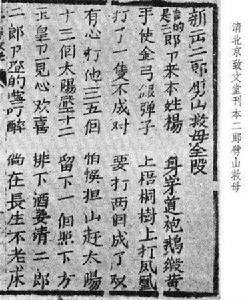 清北京致文堂刊本二郎劈山救母
新出二郎劈山救母全段
言的是二郎卩來本姓楊 身穿道袍鵝緞黃
手使金弓銀彈子 上梧桐樹上打鳳凰
打了一隻不成对 要打两個成了双
有心打他三五個 怕悞担山赶太陽
十三個太陽壓十二 留下一個照下方
玉皇卩見心歡喜 排下酒宴請二郎
二郎卩吃的寧叮醉 倘在長生不老床